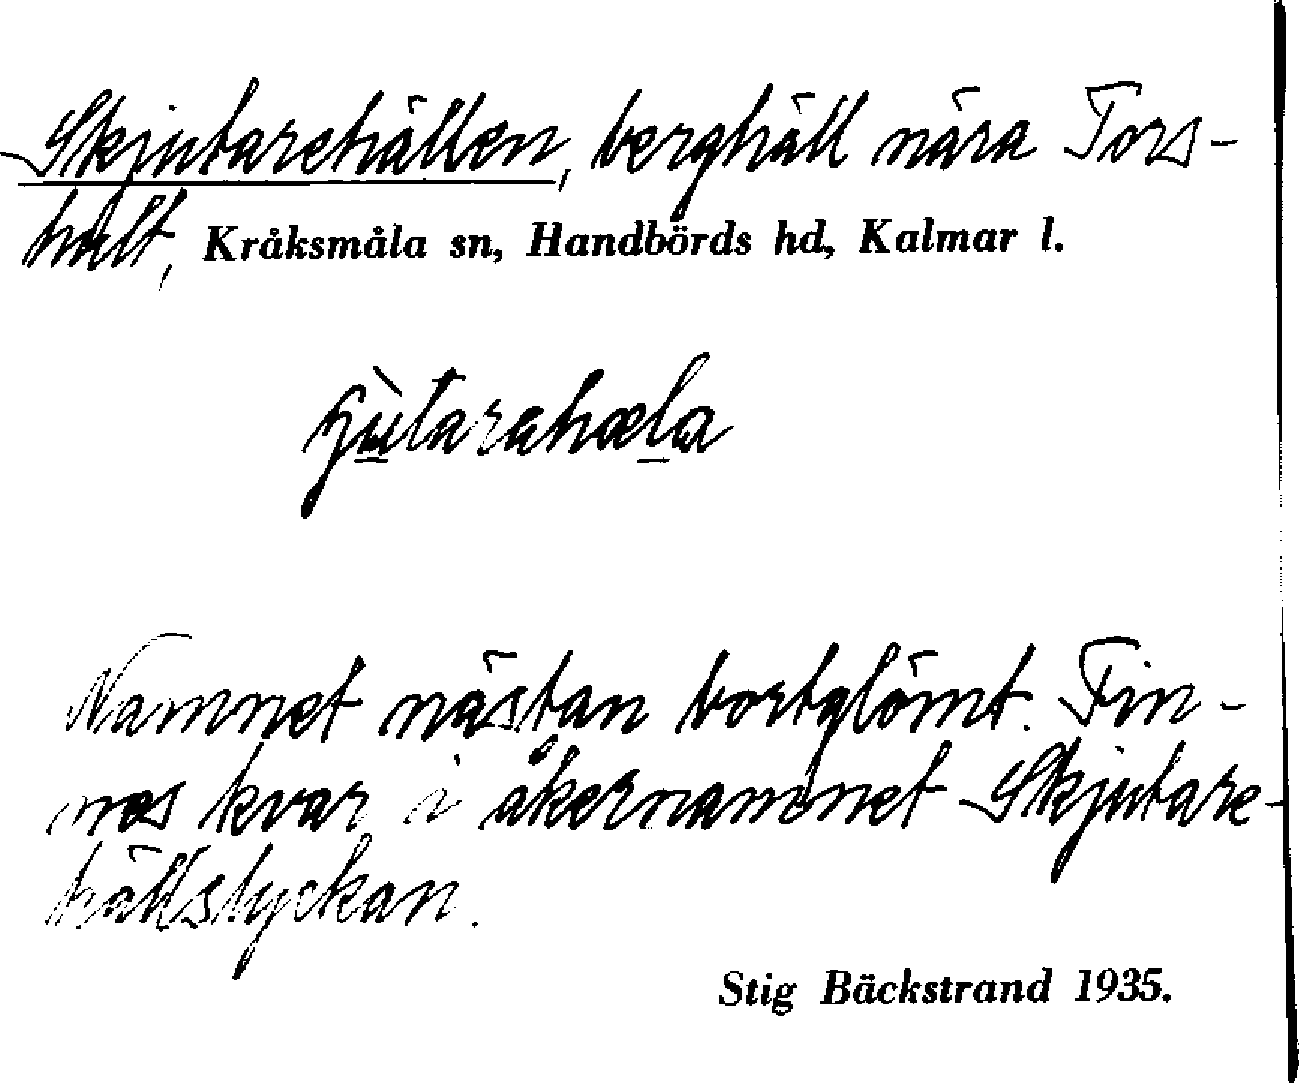 Skjutarehällen, berghäll nära Fors-
hult, Kråksmåla sn, Handbörds hd, Kalmar l.
Namnet nästan bortglömt. Fin-
nes kvar i åkernamnet Skjutare-
hällslyckan.
Stig Bäckstrand 1935.